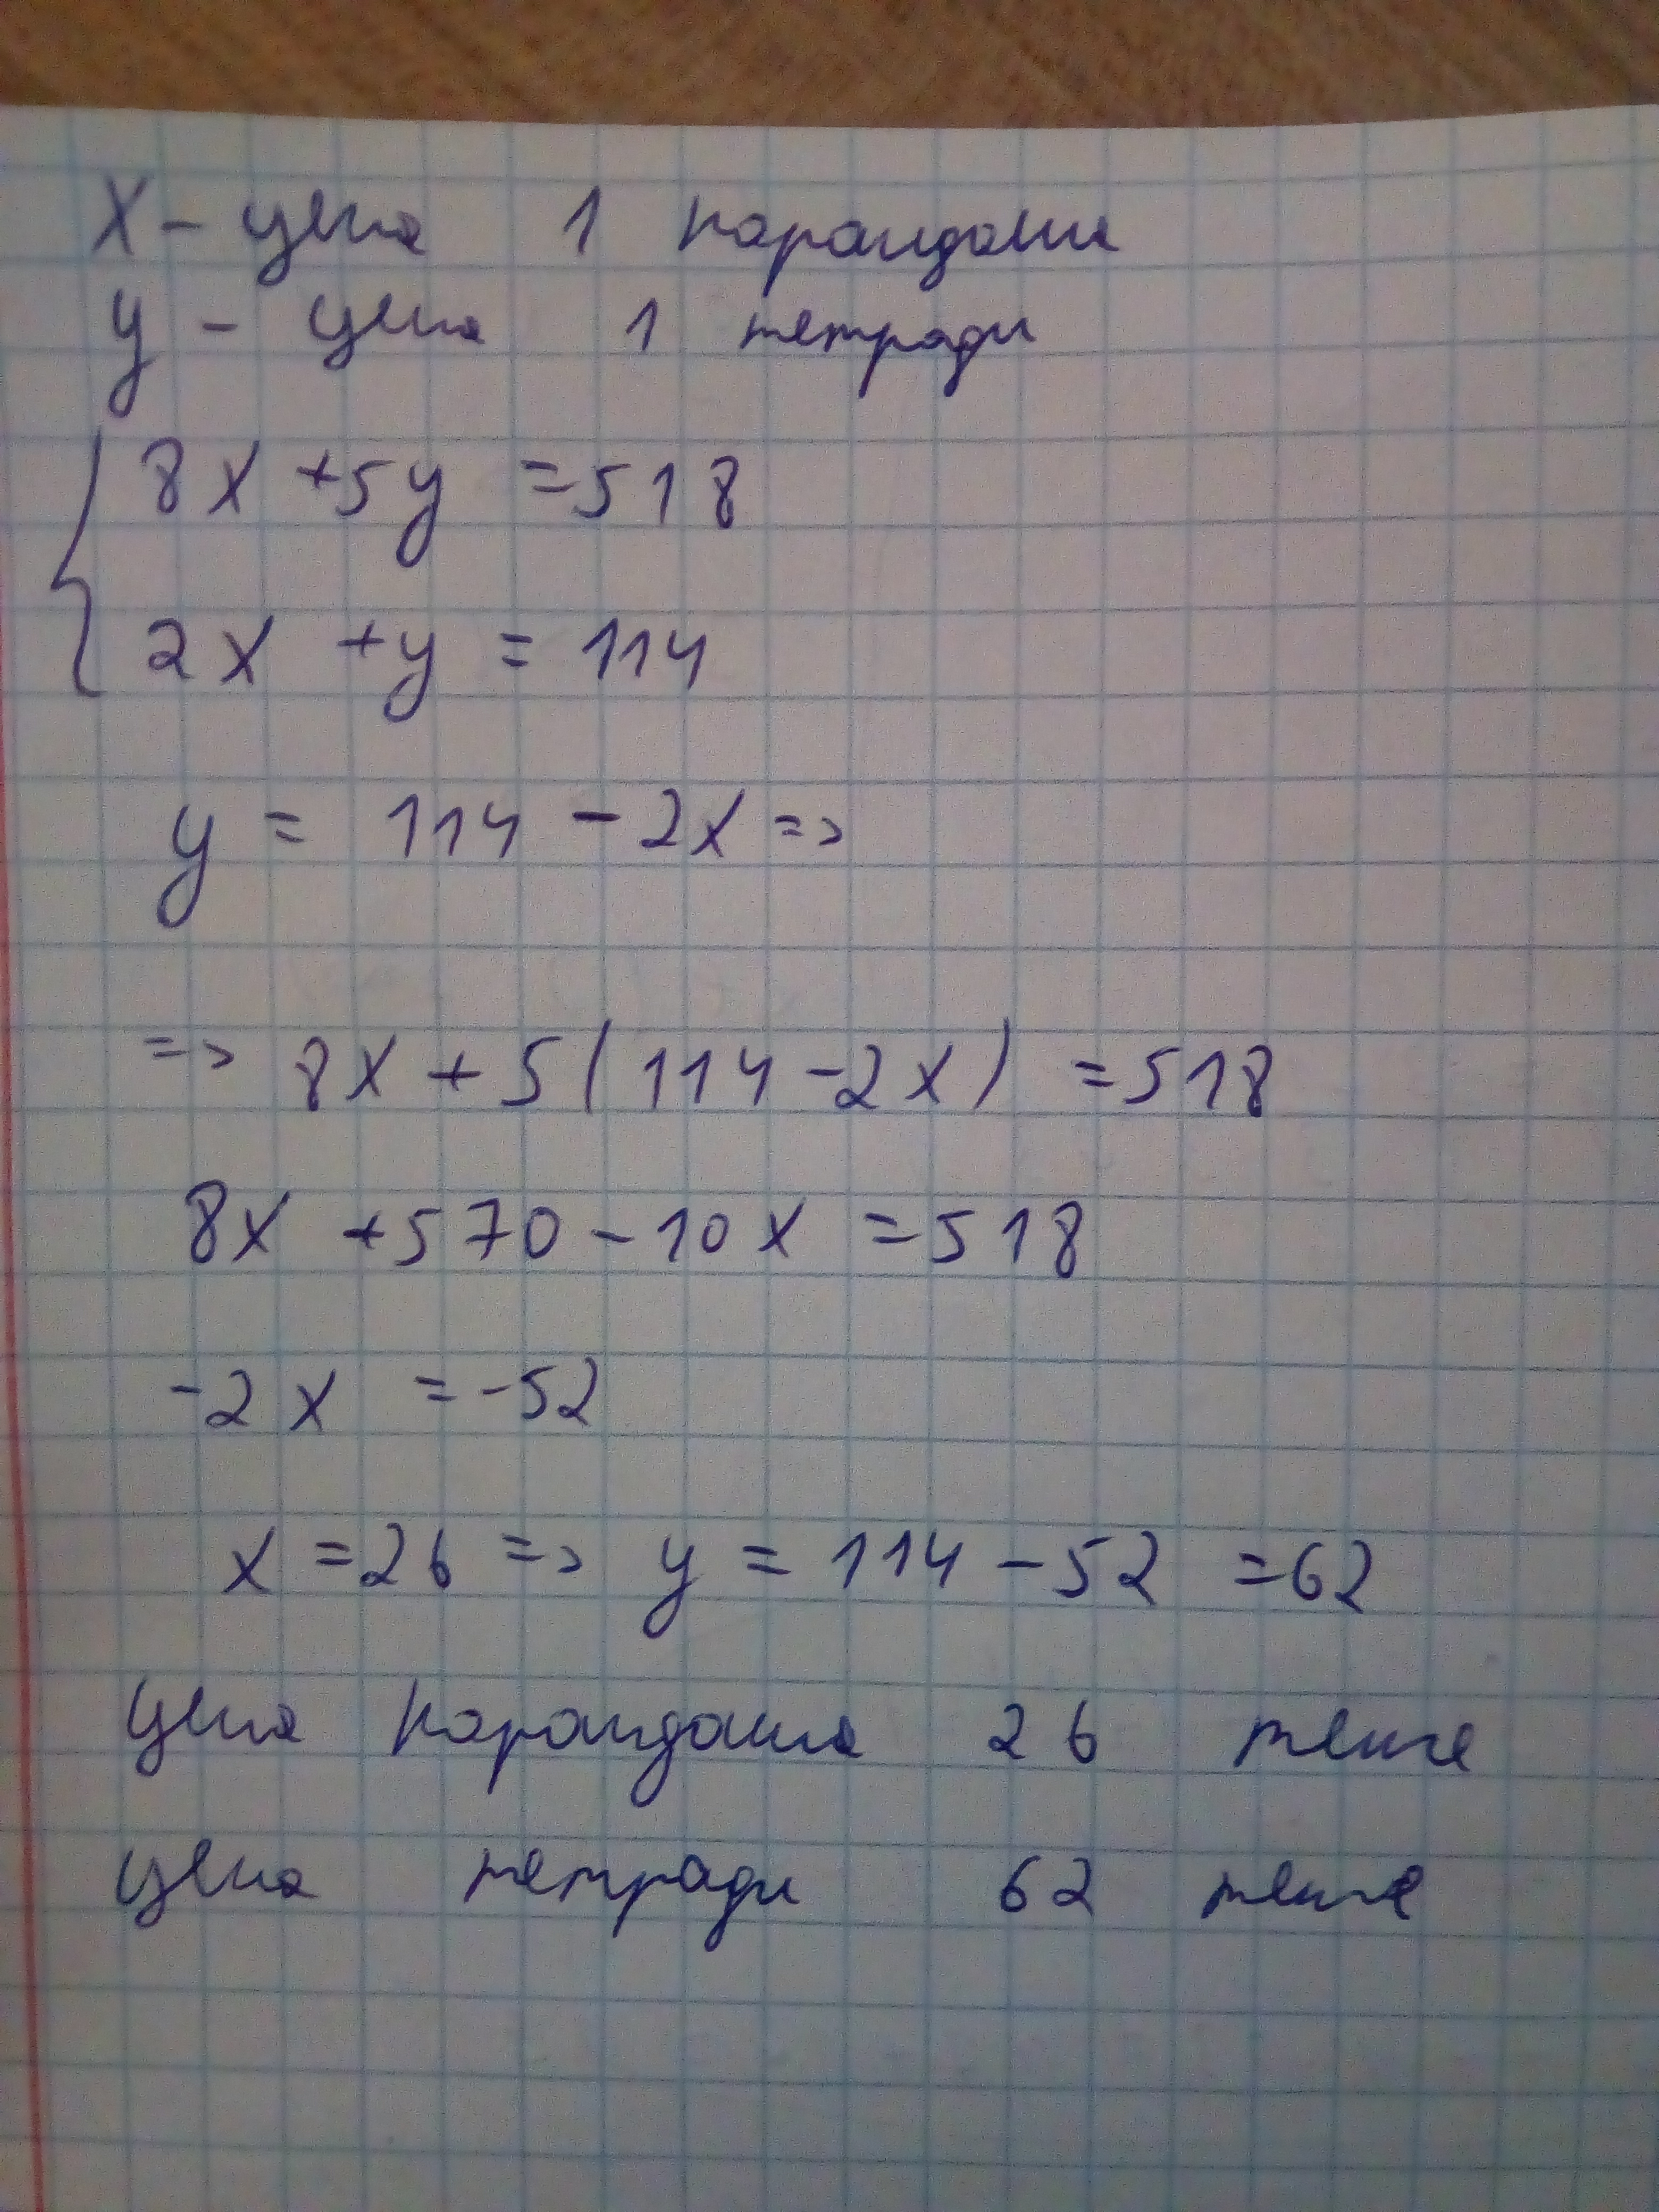 x - цена 1 карандаша
y - цена 1 тетради
8x + 5y = 518
2x + y = 114
y = 114 - 2x =>
=> 8x + 5(114 - 2x) = 518
8x + 570 - 10x = 518
-2x = -52
x = 26 => y = 114 - 52 = 62
цена карандаша 26 тенге
цена тетради 62 тенге